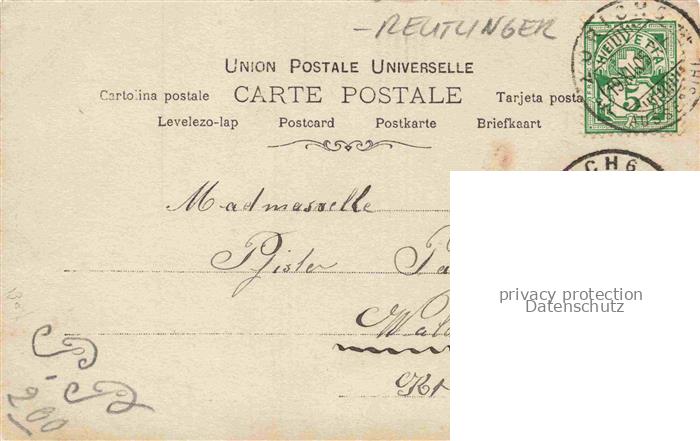 -REUTLINGER
UNION POSTALE UNIVERSELLE
Cartolina postale CARTE POSTALE Tarjeta posta
Levelezo-lap Postcard Postkarte Briefkaart
HELVETIA
5
CH 6
Madmasselle
Pfister
privacy protection
Datenschutz
Wald
Kt
P.P.
200